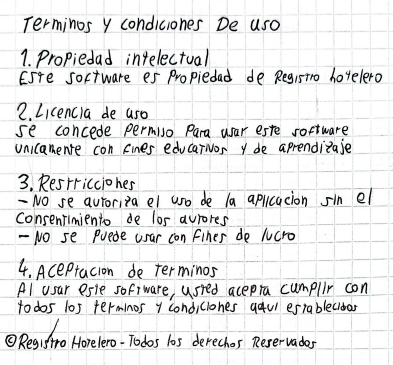 Terminos y condiciones De uso
1. Propiedad intelectual
Este software es Propiedad de Registro hotelero
2. Licencia de uso
se concede Permiso Para usar este software
unicamente con fines educativos y de aprendizaje
3. Restricciones
- No se autoriza el uso de la aplicacion sin el
consentimiento de los autores
- No se Puede usar con fines de lucro
4. Aceptacion de terminos
Al usar este software, usted acepta cumplir con
todos los terminos y condiciones aqui establecidos
© Registro Hotelero - Todos los derechos Reservados